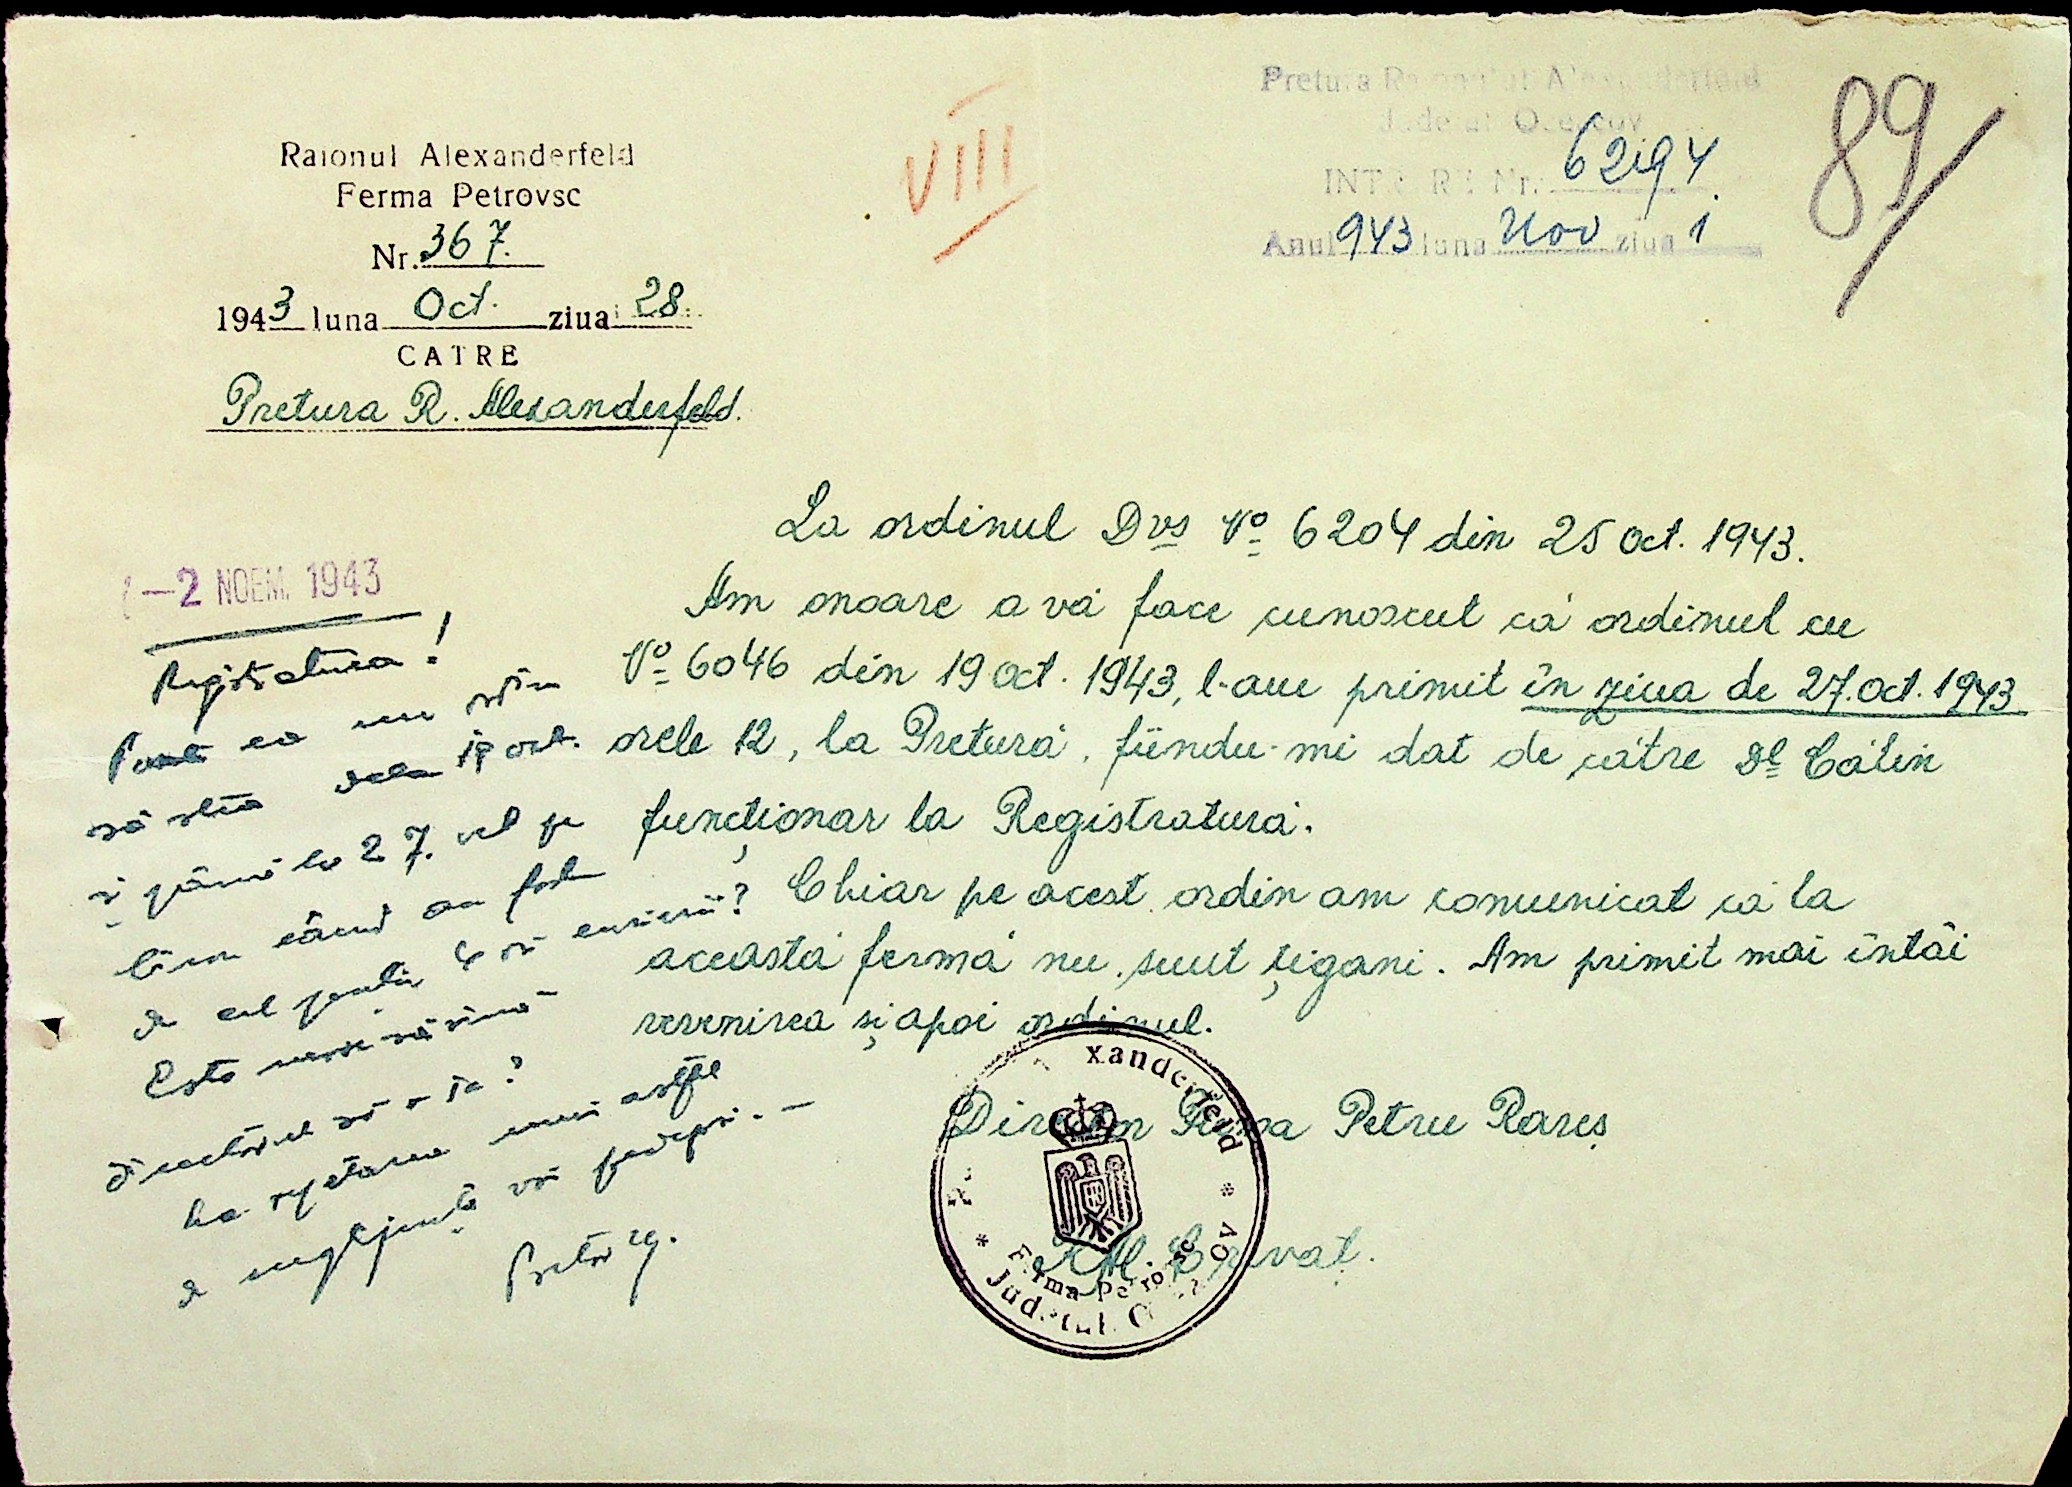 Raionul Alexanderfeld
Ferma Petrovsc
Nr. 367.
1943 luna Oct. ziua 28.
CATRE
Pretura R. Alexanderfeld.
VIII
Pretura Raionului Alexanderfeld
Judetul Oceacov
INTRARE Nr. 6294
Anul 943 luna Nov ziua 1
89
La ordinul Dvs No 6204 din 25 Oct. 1943.
Am onoare a vă face cunoscut că ordinul cu
No 6046 din 19 Oct. 1943, l-am primit în ziua de 27. Oct. 1943
orele 12, la Pretură, fiindu-mi dat de către Dl Călin
funcționar la Registratură.
Chiar pe acest ordin am comunicat că la
această fermă nu sunt țigani. Am primit mai întâi
revenirea și apoi ordinul.
Director Ferma Petru Rareș
-2 NOEM. 1943
Registratura!
ordin
să stea dela 19 oct.
și până la 27. oct
când au fost
Este
directorul să o ia?
La repetarea unei astfel
de neglijențe voi pedepsi. -
Pretor
xanderfeld
Ferma Petrovsc
Judetul Oceacov